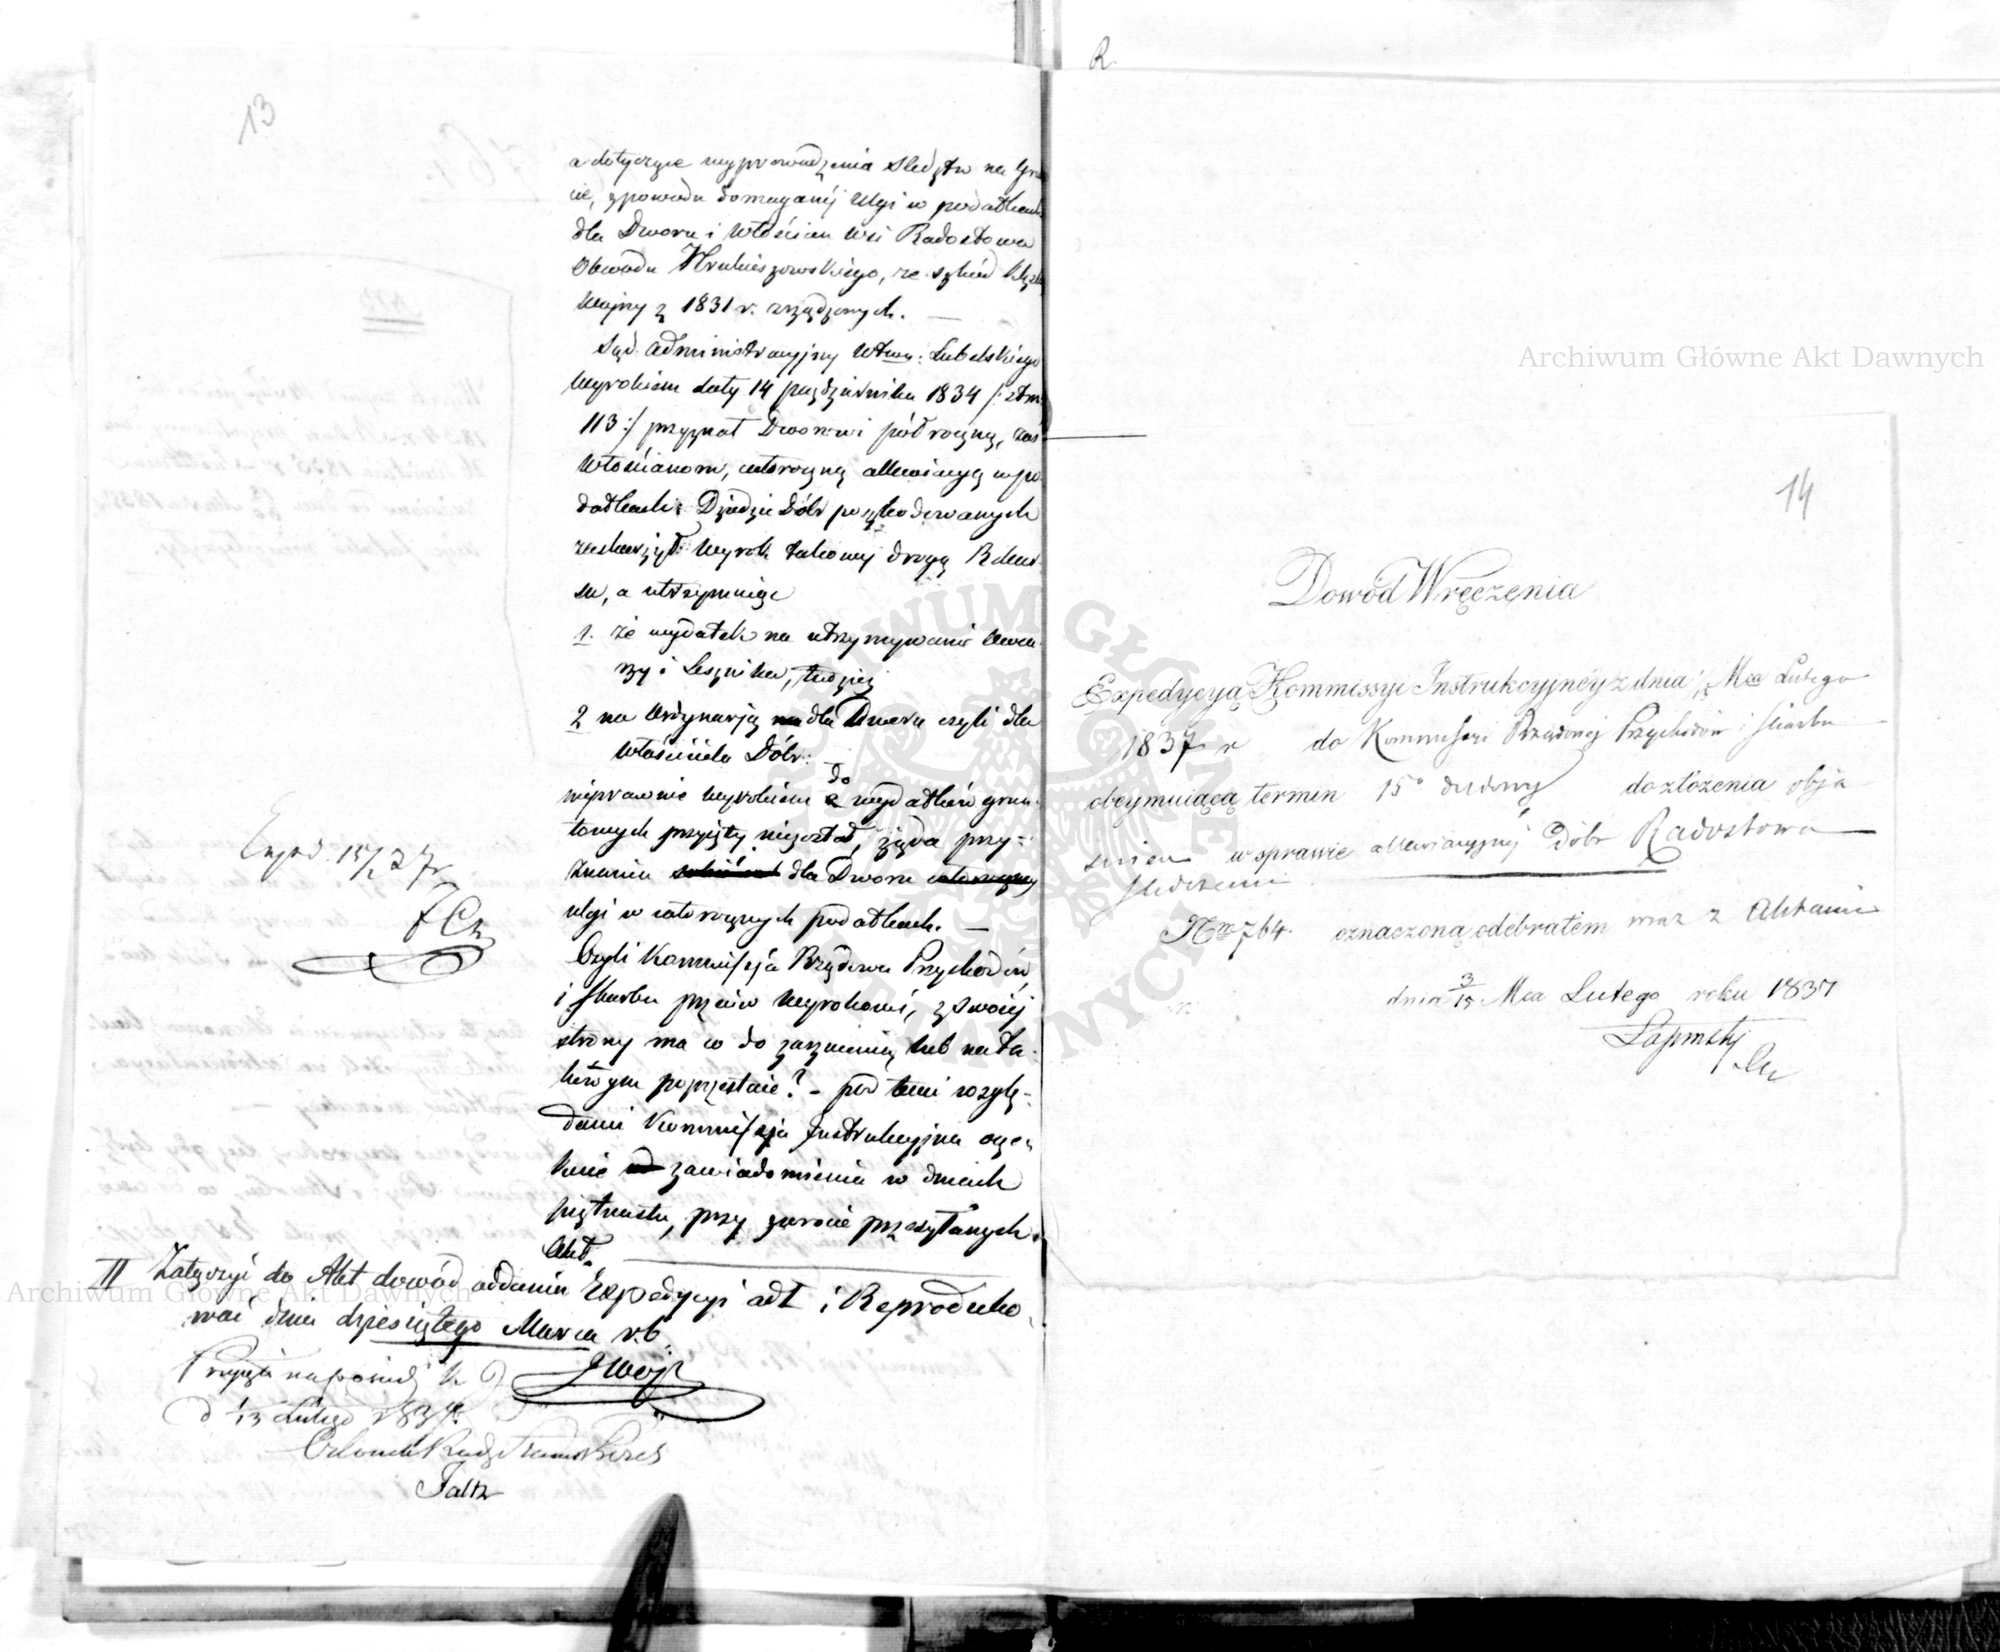 13
a dotyczące wyprowadzenia Śledztw na Gru
cie, z powodu domaganéj Ulgi w podatkach
dla Dworu i Włościan Wsi Radostowa
Obwodu Hrubieszowskiego, ze szkód klęską
Wojny z 1831 r. zrządzonych. —
Sąd Administracyjny Wtwa: Lubelskiego
Wyrokiem daty 14 października 1834 /: str
113 :/ przyznał Dworowi półroczną, zaś
Włościanom, całoroczną allewiacyą w po
datkach: Dziedzic Dóbr poszkodowanych
zaskarżył Wyrok takowy drogą Rekur
su, a utrzymując
1. że wydatek na utrzymywanie
i Leśnika, tudzież
2 na Ordynaryą dla Dworu czyli dla
Właściciela Dóbr: —
niesprawnie wyrokiem do wydatków grun
towych przyjęty niezostał, żąda przy=
znania dla Dworu
ulgi w całorocznych podatkach. —
Czyli Kommissyja Rządowa Przychodów
i Skarbu przeciw Wyrokowi, z swojéj
strony ma co do zarzucenia lub na ta=
kowym poprzestaie? – pod temi wzglę=
dami Kommissyja Instrukcyjna ocze
kuie zawiadomienia w dniach
piętnastu, przy zwrocie przesyłanych
Akt.
Exped. 15/2 37 r
II Załączyć do Akt dowód oddania Expedycyi adI i Reproduko
wać dnia dziesiątego Marca r.b.
Przyjęta na posiedz
d 1/13 Lutego 1837 r.
Członek
R
Archiwum Główne Akt Dawnych
14
Dowód Wręczenia
Expedycyą Kommissyi Instrukcyjnéy z dnia Mca Lutego
1837 r do Kommissyi Rządowej Przychodów i Skarbu
obeymuiącą termin 15o dniowy do złożenia obja
śnień w sprawie allewiacyjnéj Dóbr Radostowa
Nro 764. oznaczoną odebrałem wraz z Aktami
dnia 3/15 Mca Lutego roku 1837
Archiwum Główne Akt Dawnych
ARCHIWUM GŁÓWNE AKT DAWNYCH